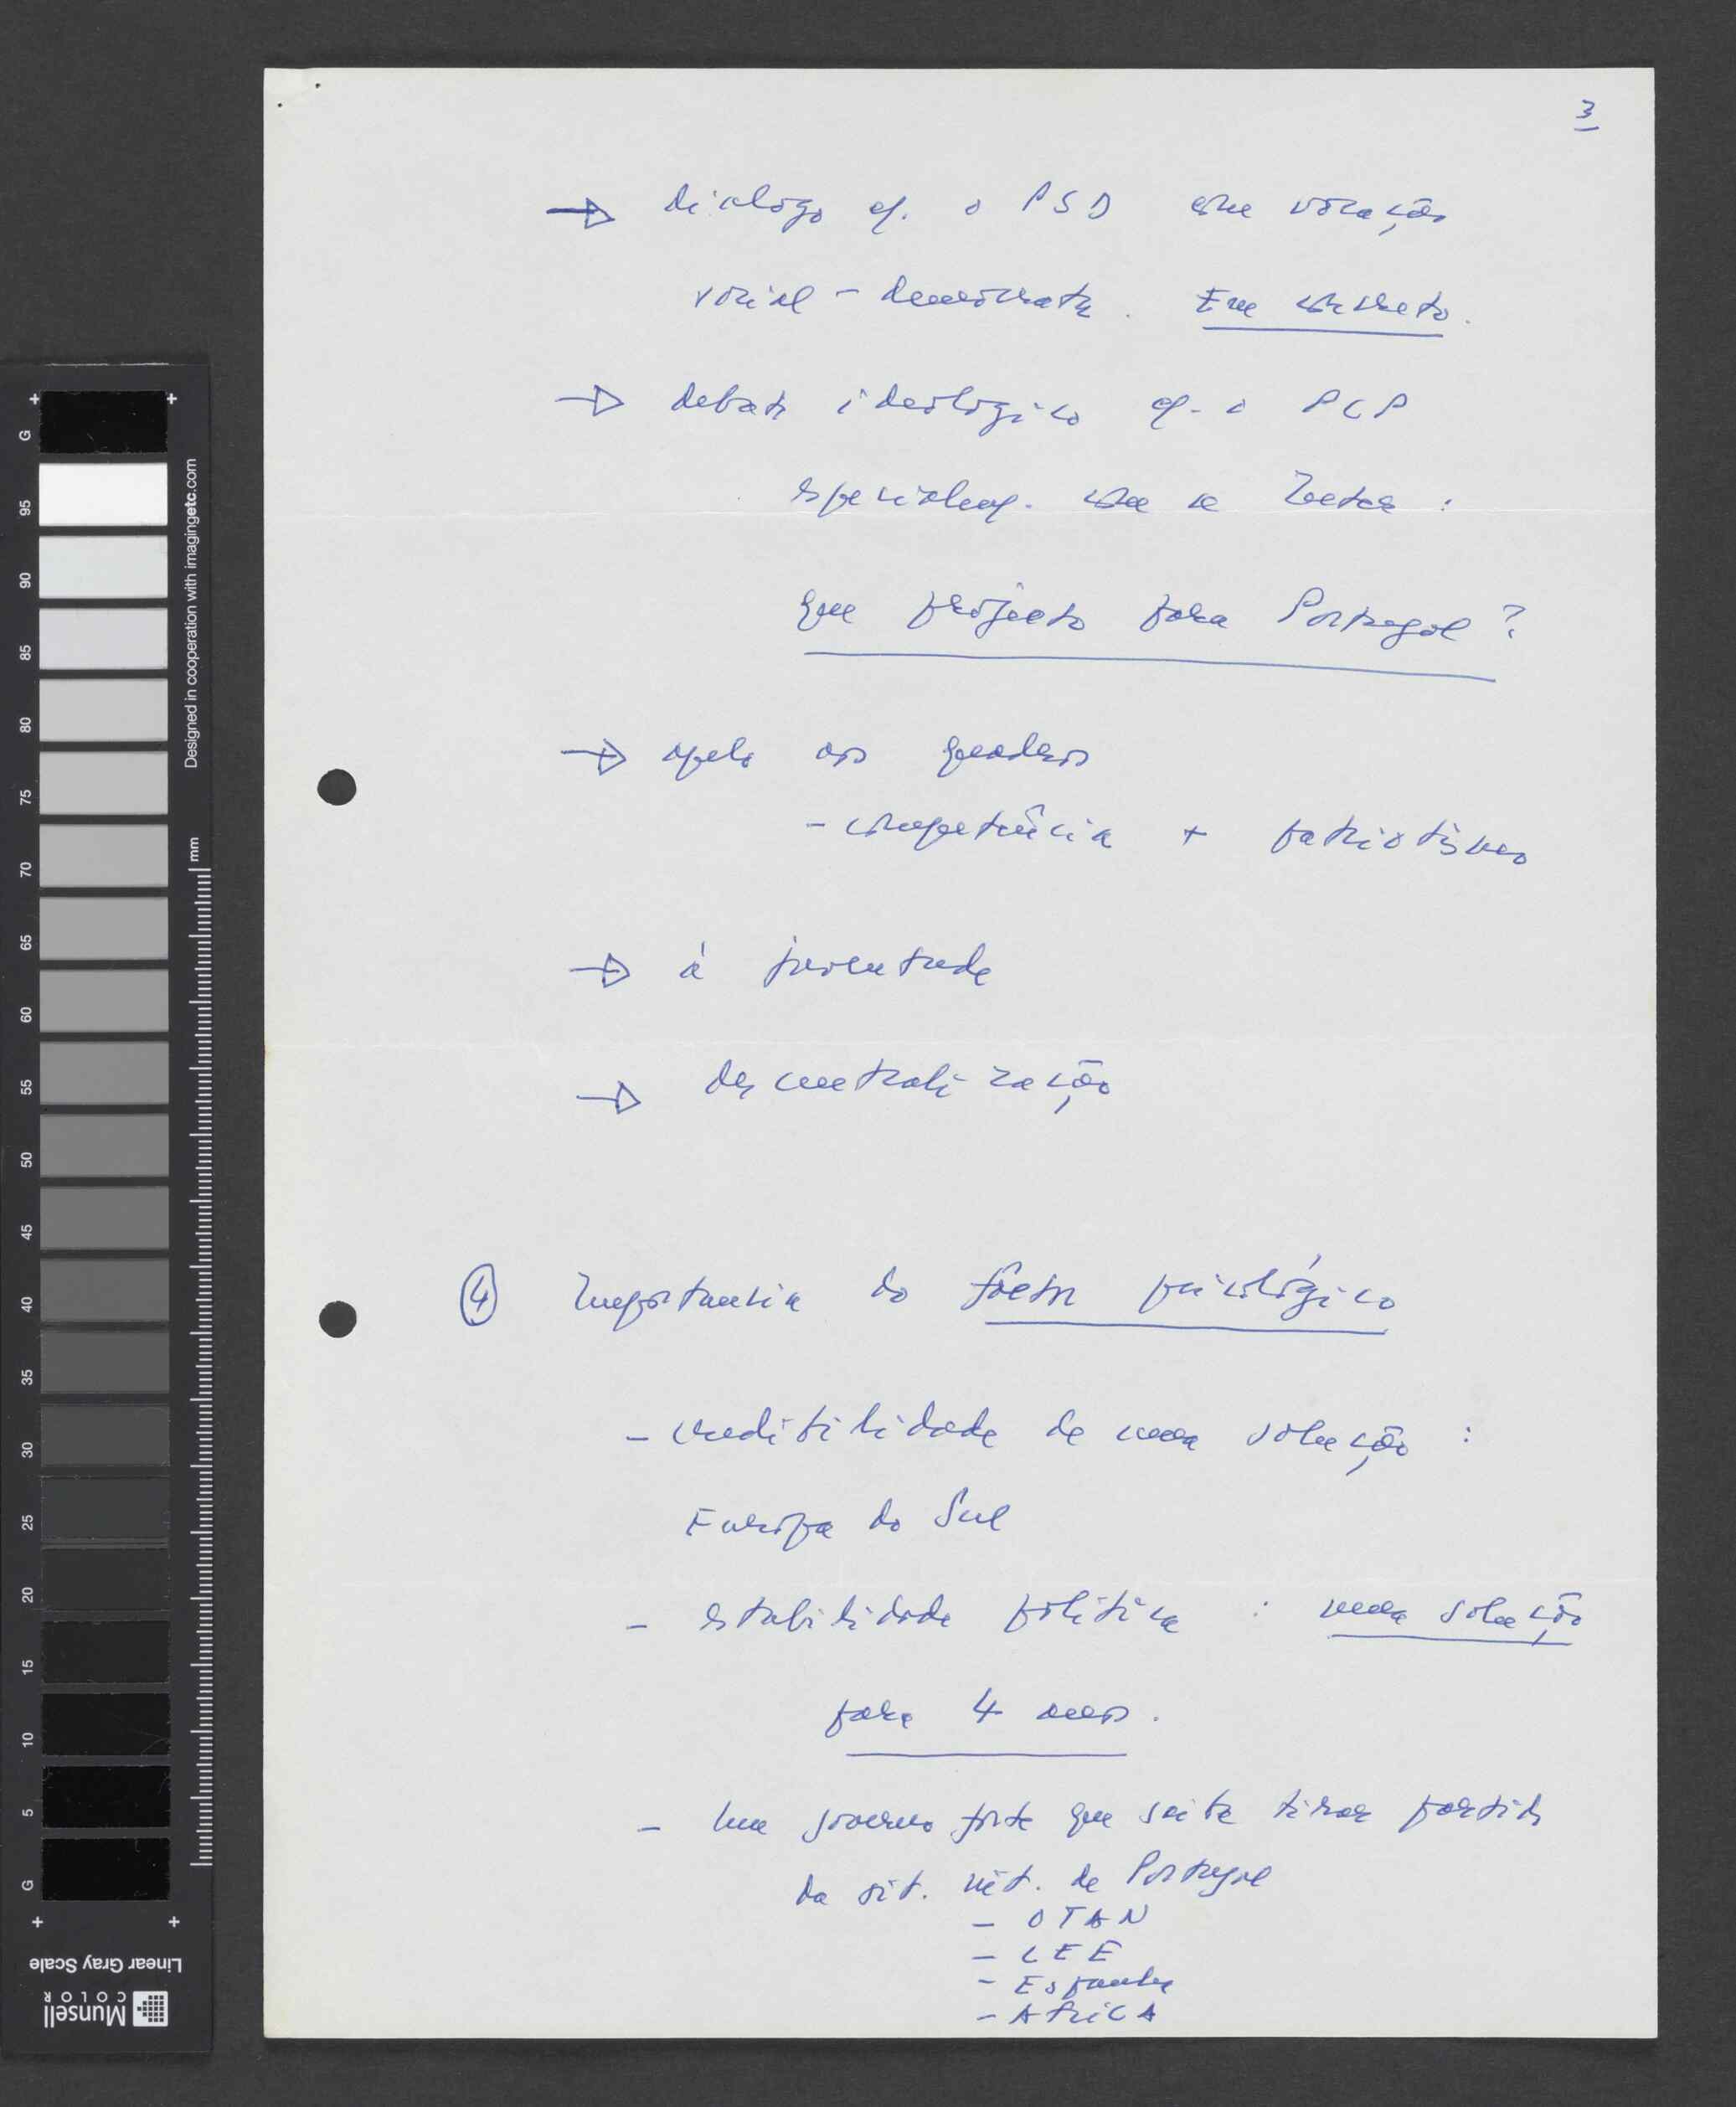 3
→ dialogo c/. o PSD com vocação
social-democrata. Em concreto.
→ debate ideológico c/. o PCP
especialm/. com a Inter :
que projecto para Portugal ?
→ apelo aos quadros
- competência + patriotismo
→ à juventude
→ descentralização
④ Importancia do factor psicológico
- credibilidade de uma solução :
Europa do Sul
- estabilidade política : uma solução
para 4 anos.
- Um governo forte que saiba tirar partido
da sit. int. de Portugal
- OTAN
- CEE
- Espanha
- AfricA
+ +
G 95 90 85 80 75 70 65 60 55 50 45 40 35 30 25 20 15 10 5 G
+ +
Designed in cooperation with imagingetc.com
mm
Linear Gray Scale
Munsell
COLOR